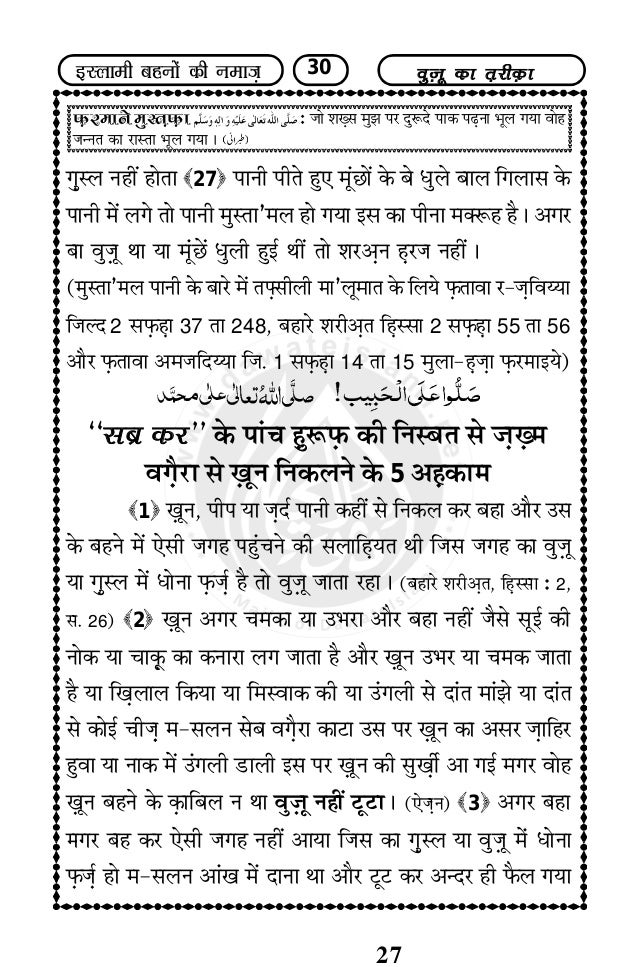 इस्लामी बहनों की नमाज़ 30 वुज़ू का त़रीक़ा
फ़रमाने मुस्त़फ़ा صَلَّى اللهُ تَعَالٰى عَلَيْهِ وَاٰلِهٖ وَسَلَّم : जो शख़्स मुझ पर दुरूदे पाक पढ़ना भूल गया वोह
जन्नत का रास्ता भूल गया । (طبرانی)
ग़ुस्ल नहीं होता ﴾27﴿ पानी पीते हुए मूंछों के बे धुले बाल गिलास के
पानी में लगे तो पानी मुस्ता'मल हो गया इस का पीना मक्रूह है । अगर
बा वुज़ू था या मूंछें धुली हुई थीं तो शरअ़न ह़रज नहीं ।
(मुस्ता'मल पानी के बारे में तफ़्सीली मा'लूमात के लिये फ़तावा र-ज़विय्या
जिल्द 2 सफ़ह़ा 37 ता 248, बहारे शरीअ़त हि़स्सा 2 सफ़ह़ा 55 ता 56
और फ़तावा अमजदिय्या जि. 1 सफ़ह़ा 14 ता 15 मुला-ह़ज़ा फ़रमाइये)
صَلُّوْا عَلَى الْحَبِيْب! صلَّى اللهُ تعالٰى على محمَّد
‘‘सब्र कर’’ के पांच हु़रूफ़ की निस्बत से ज़ख़्म
वग़ैरा से ख़ून निकलने के 5 अह़काम
﴾1﴿ ख़ून, पीप या ज़र्द पानी कहीं से निकल कर बहा और उस
के बहने में ऐसी जगह पहुंचने की सलाहि़यत थी जिस जगह का वुज़ू
या ग़ुस्ल में धोना फ़र्ज़ है तो वुज़ू जाता रहा । (बहारे शरीअ़त, हि़स्सा : 2,
स. 26) ﴾2﴿ ख़ून अगर चमका या उभरा और बहा नहीं जैसे सूई की
नोक या चाक़ू का कनारा लग जाता है और ख़ून उभर या चमक जाता
है या खि़लाल किया या मिस्वाक की या उंगली से दांत मांझे या दांत
से कोई चीज़ म-सलन सेब वग़ैरा काटा उस पर ख़ून का असर ज़ाहिर
हुवा या नाक में उंगली डाली इस पर ख़ून की सुर्ख़ी आ गई मगर वोह
ख़ून बहने के क़ाबिल न था वुज़ू नहीं टूटा । (ऐज़न) ﴾3﴿ अगर बहा
मगर बह कर ऐसी जगह नहीं आया जिस का ग़ुस्ल या वुज़ू में धोना
फ़र्ज़ हो म-सलन आंख में दाना था और टूट कर अन्दर ही फैल गया
27